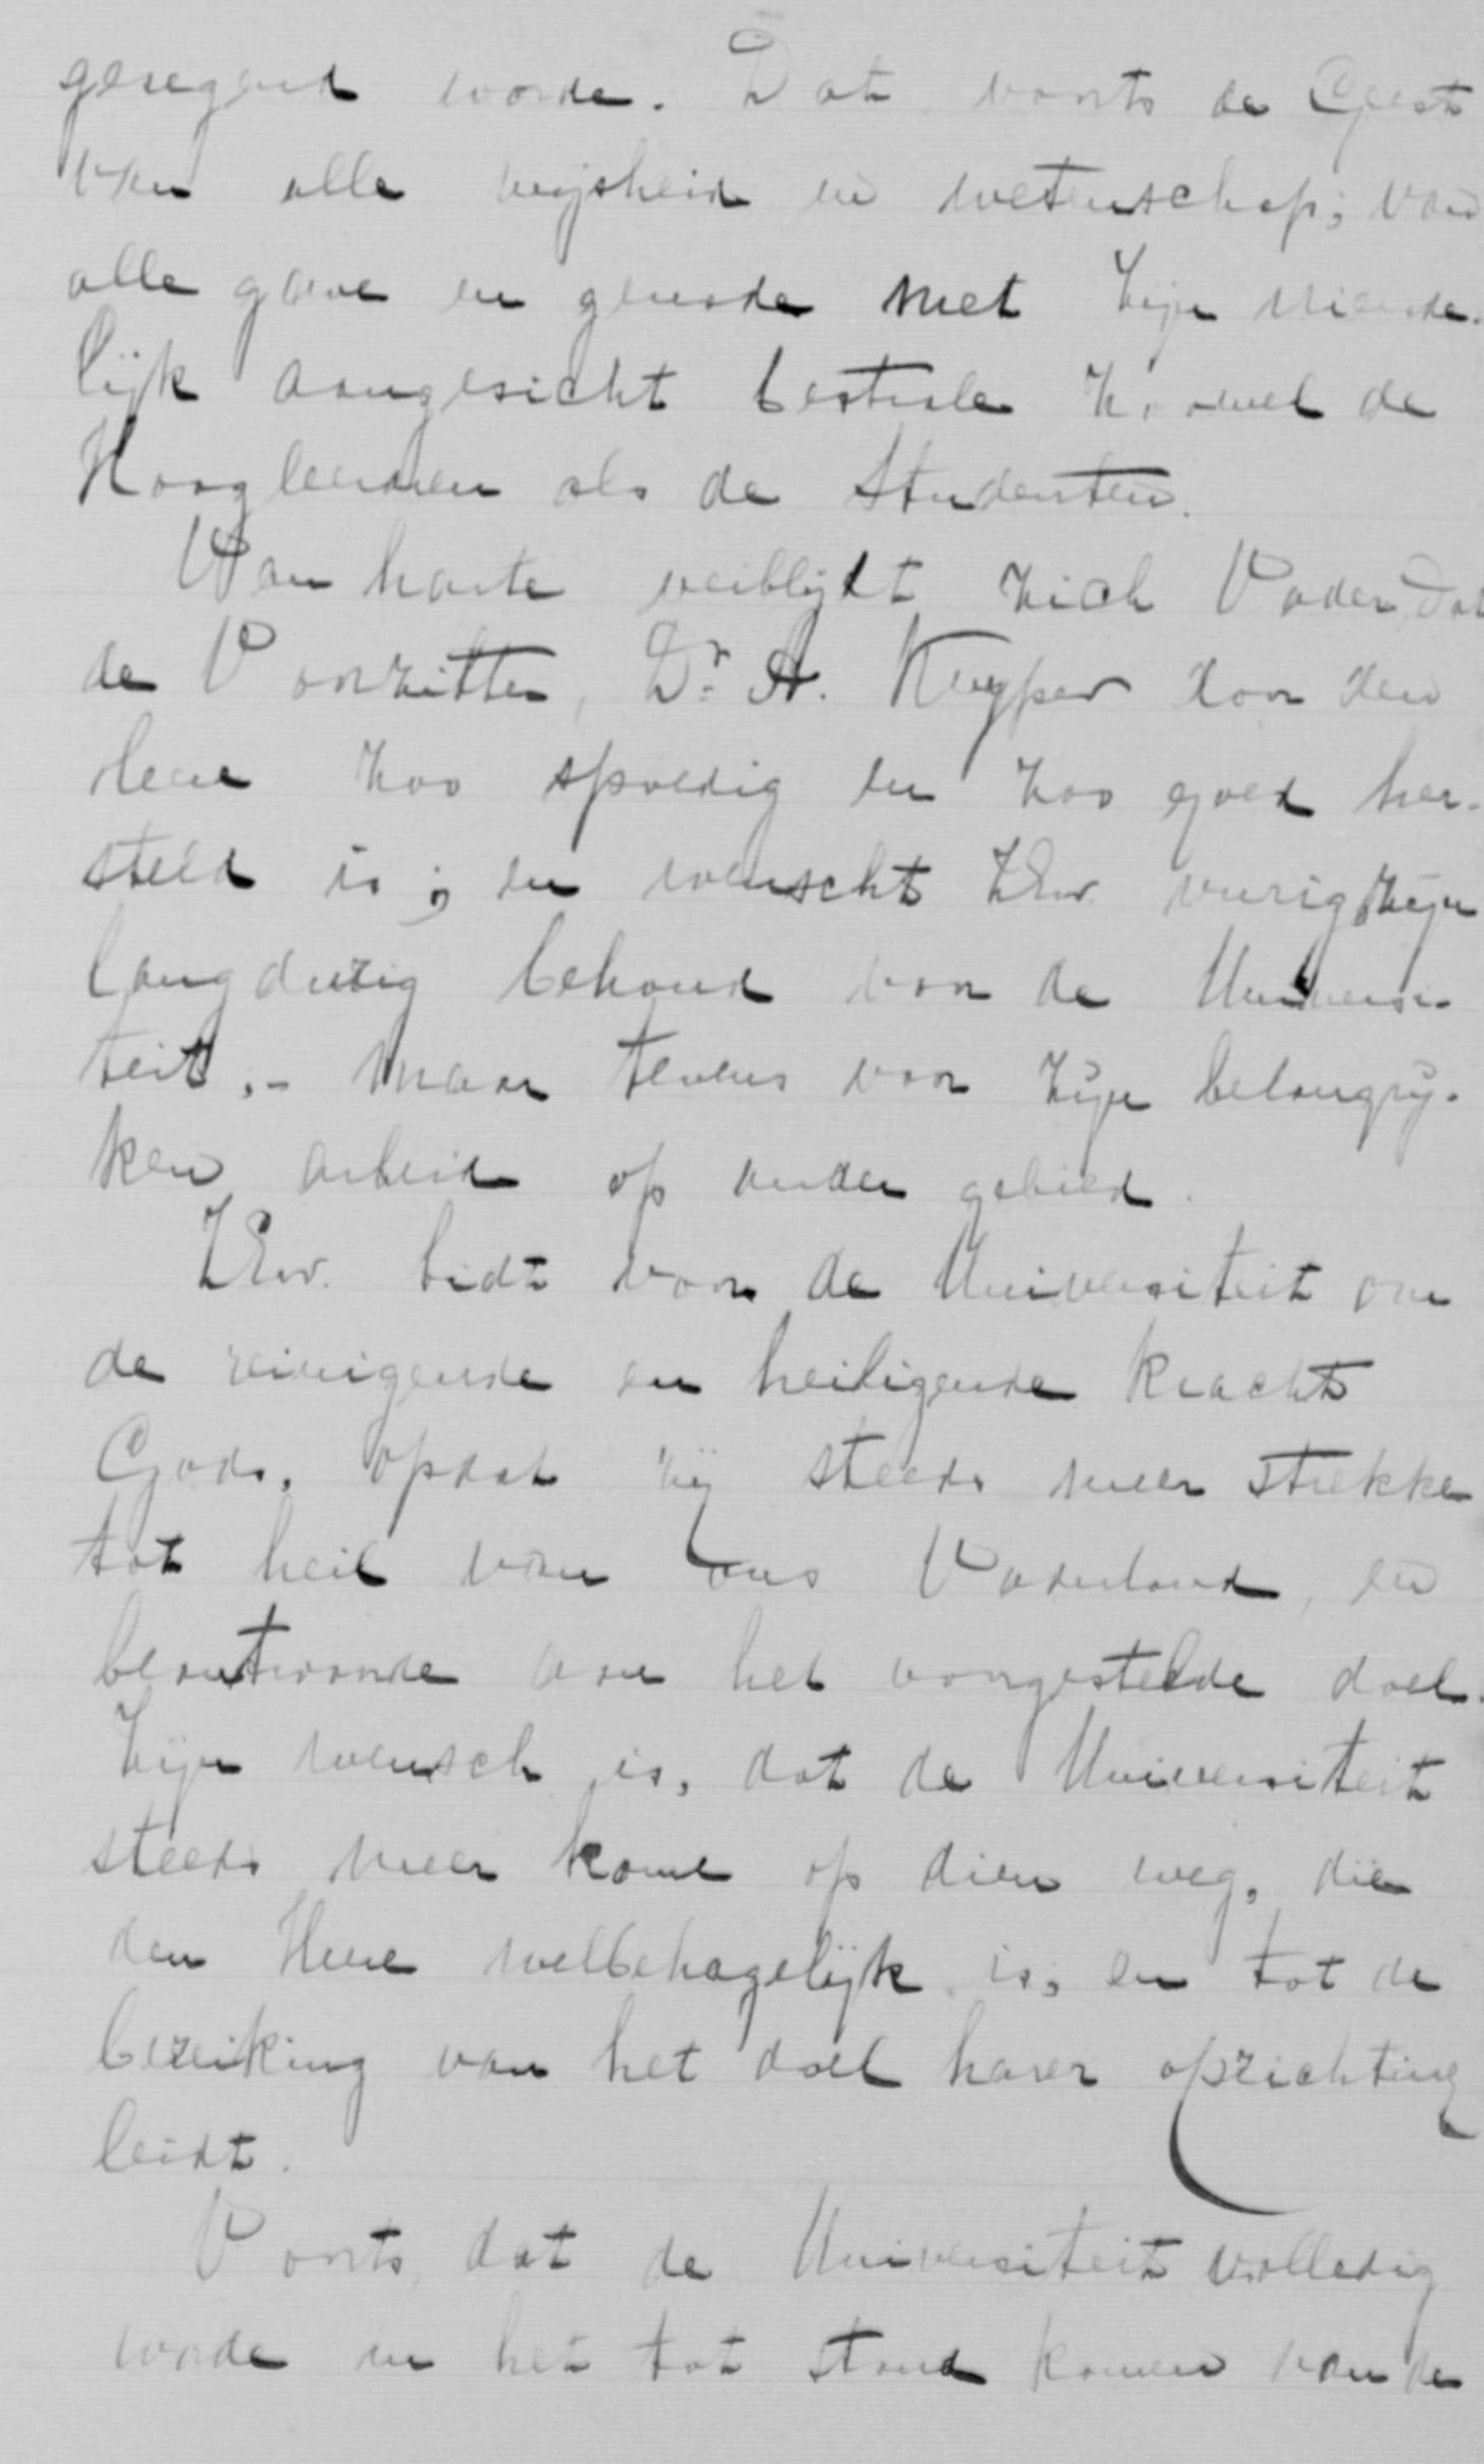 gezegend worde. Dat voorts de Geest
van alle wijsheid en wetenschap, van
alle gave en genade met Zijn vriende-
lijk aangezicht bestrale zoowel de
Hoogleeraren als de Studenten.
Van harte verblijdt zich Vader, dat
de Voorzitter, Dr. A. Kuyper door den
Heere zoo spoedig en zoo goed her-
steld is; en wenscht ZEw. vurig zijn
langdurig behoud voor de Universi-
teit, - maar tevens voor zijn belangrij-
ken arbeid op ander gebied.
ZEw. bidt voor de Universiteit om
de reinigende en heiligende kracht
Gods, opdat zij steeds meer strekke
tot heil van ons Vaderland, en
beantwoorde aan het voorgestelde doel.
Zijn wensch is, dat de Universiteit
steeds meer kome op dien weg, die
den Heere welbehagelijk is, en tot de
bereiking van het doel harer oprichting
leidt.
Voorts, dat de Universiteit volledig
worde in het tot stand komen van de